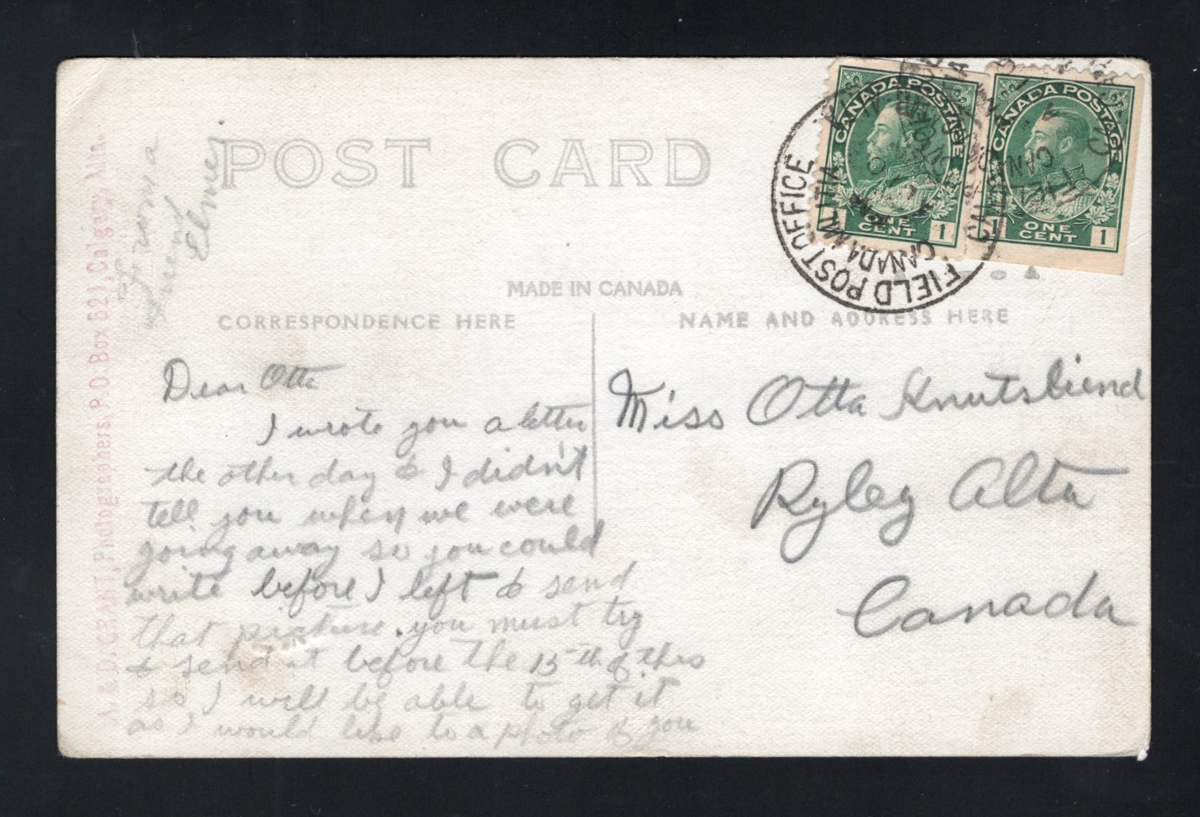 POST CARD
MADE IN CANADA
CORRESPONDENCE HERE
NAME AND ADDRESS HERE
CANADA POSTAGE
1 ONE CENT 1
CANADA POSTAGE
1 ONE CENT 1
FIELD POST OFFICE
CANADA MILITIA
A. & D. GRANT, Photographers P.O. Box 621, Calgary, Alta.
From a
friend
Elmer
Dear Otta
I wrote you a letter
the other day & I didn't
tell you when we were
going away so you could
write before I left & send
that picture. you must try
& send it before the 15th of this
so I will be able to get it
as I would like to a photo of you
Miss Otta
Ryley Alta
Canada